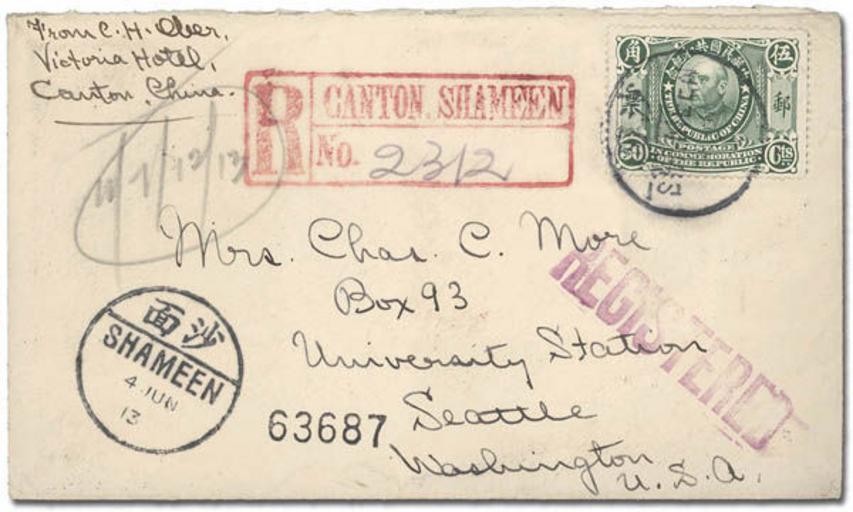 From C. H. Ober,
Victoria Hotel,
Canton, China.
R CANTON. SHAMEEN
No. 2312
角 伍
郵
THE REPUBLIC OF CHINA
POSTAGE
50 Cts
IN COMMEMORATION
OF THE REPUBLIC
Mrs. Chas. C. More
Box 93
University Station
Seattle
Washington
U. S. A.
REGISTERED
面沙
SHAMEEN
4 JUN
13
63687